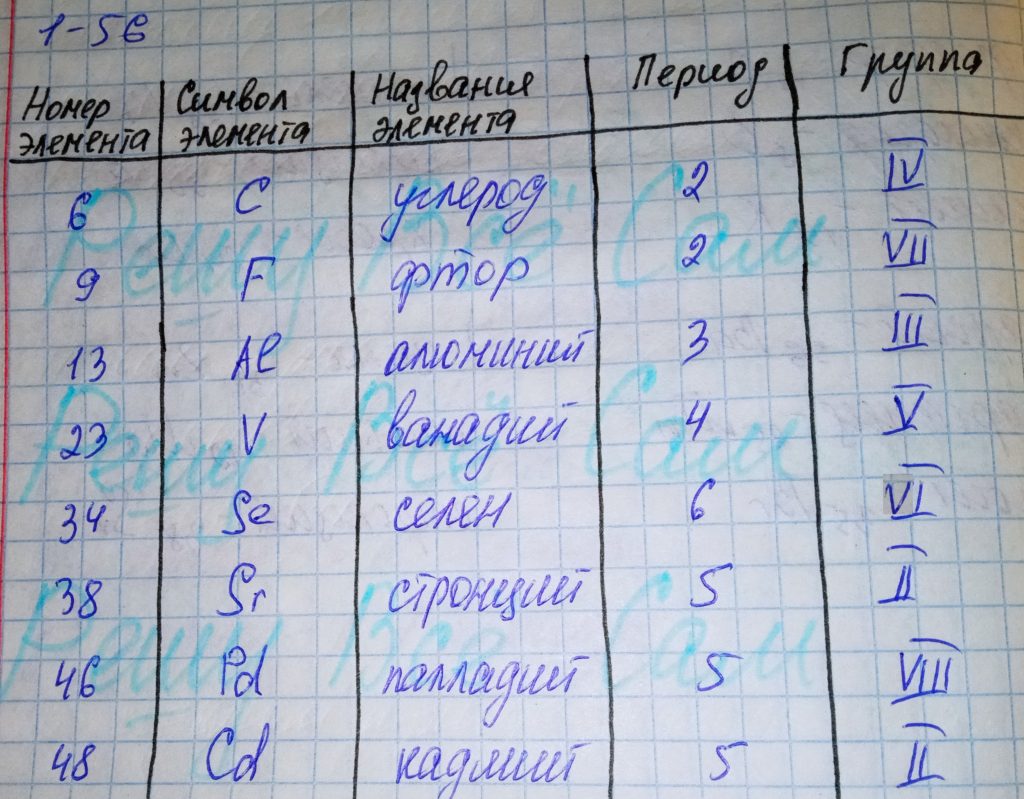 1-56
Номер элемента | Символ элемента | Названия элемента | Период | Группа
6 | C | углерод | 2 | IV
9 | F | фтор | 2 | VII
13 | Al | алюминий | 3 | III
23 | V | ванадий | 4 | V
34 | Se | селен | 6 | VI
38 | Sr | стронций | 5 | II
46 | Pd | палладий | 5 | VIII
48 | Cd | кадмий | 5 | II
Решу Всё Сам
Решу Всё Сам
Решу Всё Сам